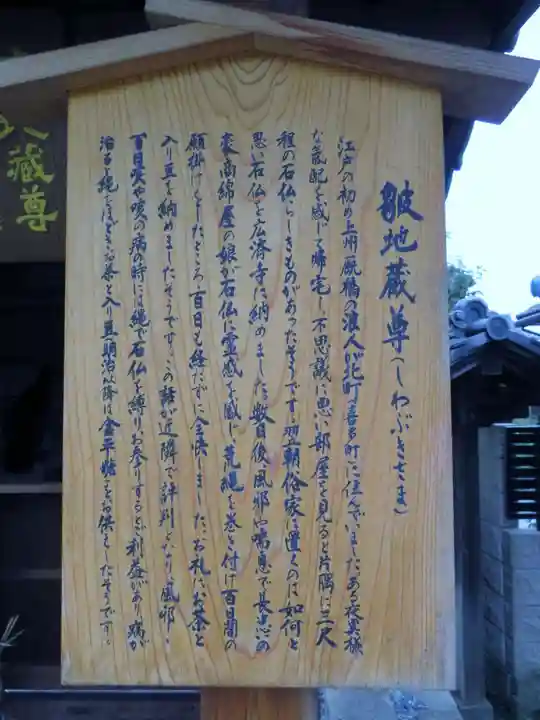 皺地蔵尊(しわぶきさま)
江戸の初め上州厩橋の浪人が北町喜多町に住んでいました。ある夜異様
な気配を感じて帰宅し、不思議に思い部屋を見ると片隅に三尺
程の石仏らしきものがあったそうです。翌朝俗家に置くのは如何と
思い石仏を広済寺に納めました。数日後、風邪や喘息で長患の
豪商綿屋の娘が石仏に霊感を感じ、荒縄を巻き付け百日間の
願掛けをしたところ、百日も経たずに全快しました。お礼にお茶と
入り豆を納めましたそうです。この話が近隣で評判となり、風邪、
百日咳や咳の病の時には縄で石仏を縛りお参りするとご利益があり病が
治ると縄をほどき、お茶と入り豆(明治以降は金平糖)をお供えしたそうです。
蔵尊